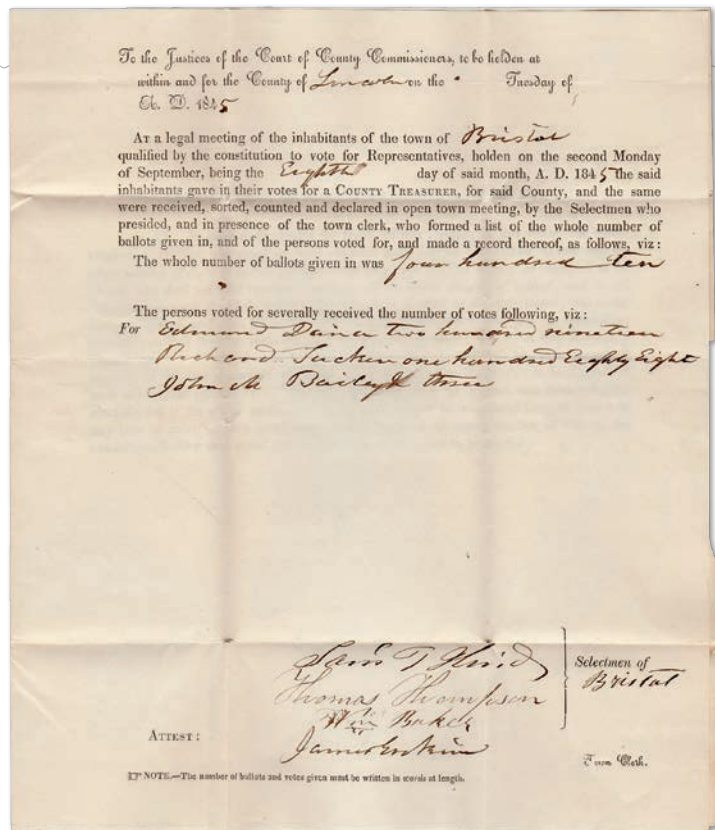 To the Justices of the Court of County Commissioners, to be holden at
within and for the County of Lincoln on the Tuesday of
A. D. 1845
At a legal meeting of the inhabitants of the town of Bristol
qualified by the constitution to vote for Representatives, holden on the second Monday
of September, being the Eighth day of said month, A. D. 1845 the said
inhabitants gave in their votes for a COUNTY TREASURER, for said County, and the same
were received, sorted, counted and declared in open town meeting, by the Selectmen who
presided, and in presence of the town clerk, who formed a list of the whole number of
ballots given in, and of the persons voted for, and made a record thereof, as follows, viz:
The whole number of ballots given in was four hundred ten
The persons voted for severally received the number of votes following, viz:
For Edmund Dana two hundred nineteen
Richard Tucker one hundred Eighty Eight
John M Bailey three
Selectmen of
Bristol
Thomas Thompson
Wm Baker
ATTEST:
James Erskine
Town Clerk.
☞ NOTE.—The number of ballots and votes given must be written in words at length.